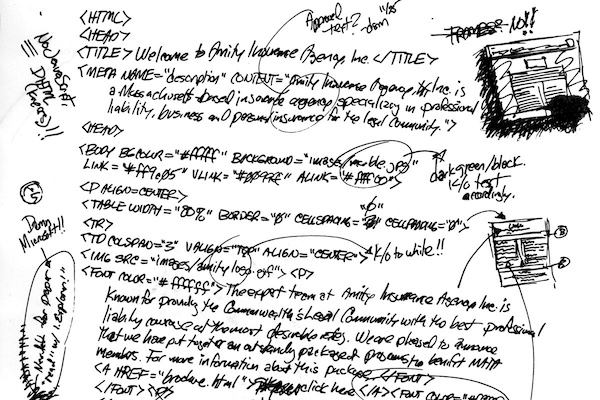 Approval
text? 11/25
<HTML>
<HEAD>
<TITLE> Welcome to Amity Insurance Agency, Inc </TITLE>
<META NAME="description" CONTENT="Amity Insurance Agency, Inc. is
a Massachusetts-based insurance agency specializing in professional
liability, business and personal insurance for the legal community.">
<HEAD>
<BODY BGCOLOR="#fffff" BACKGROUND="images/marble.jpg"
LINK="#ff9c05" VLINK="#" ALINK="#">
<P ALIGN=CENTER>
<TABLE WIDTH="80%" BORDER="0" CELLSPACING="0" CELLPADDING="0">
<TR>
<TD COLSPAN="3" VALIGN="TOP" ALIGN="CENTER">
<IMG SRC="images/amitylogo.gif"> <P>
<FONT COLOR="#ffffff"> The expert team at Amity Insurance Agency, Inc. is
known for providing the Commonwealth's Legal Community with the best professional
liability coverage at the most desirable rates. We are pleased to announce
that we have put together an outstandingly packaged program to benefit
members. For more information about this package </FONT>
<A HREF="brochure.html"> click here </A> <FONT COLOR=
</FONT> <P>
No JavaScript,
DHTML
FRAMES? NO!!
dark green/black.
k/o text
accordingly.
k/o to white!!
Damn
Microsoft!!